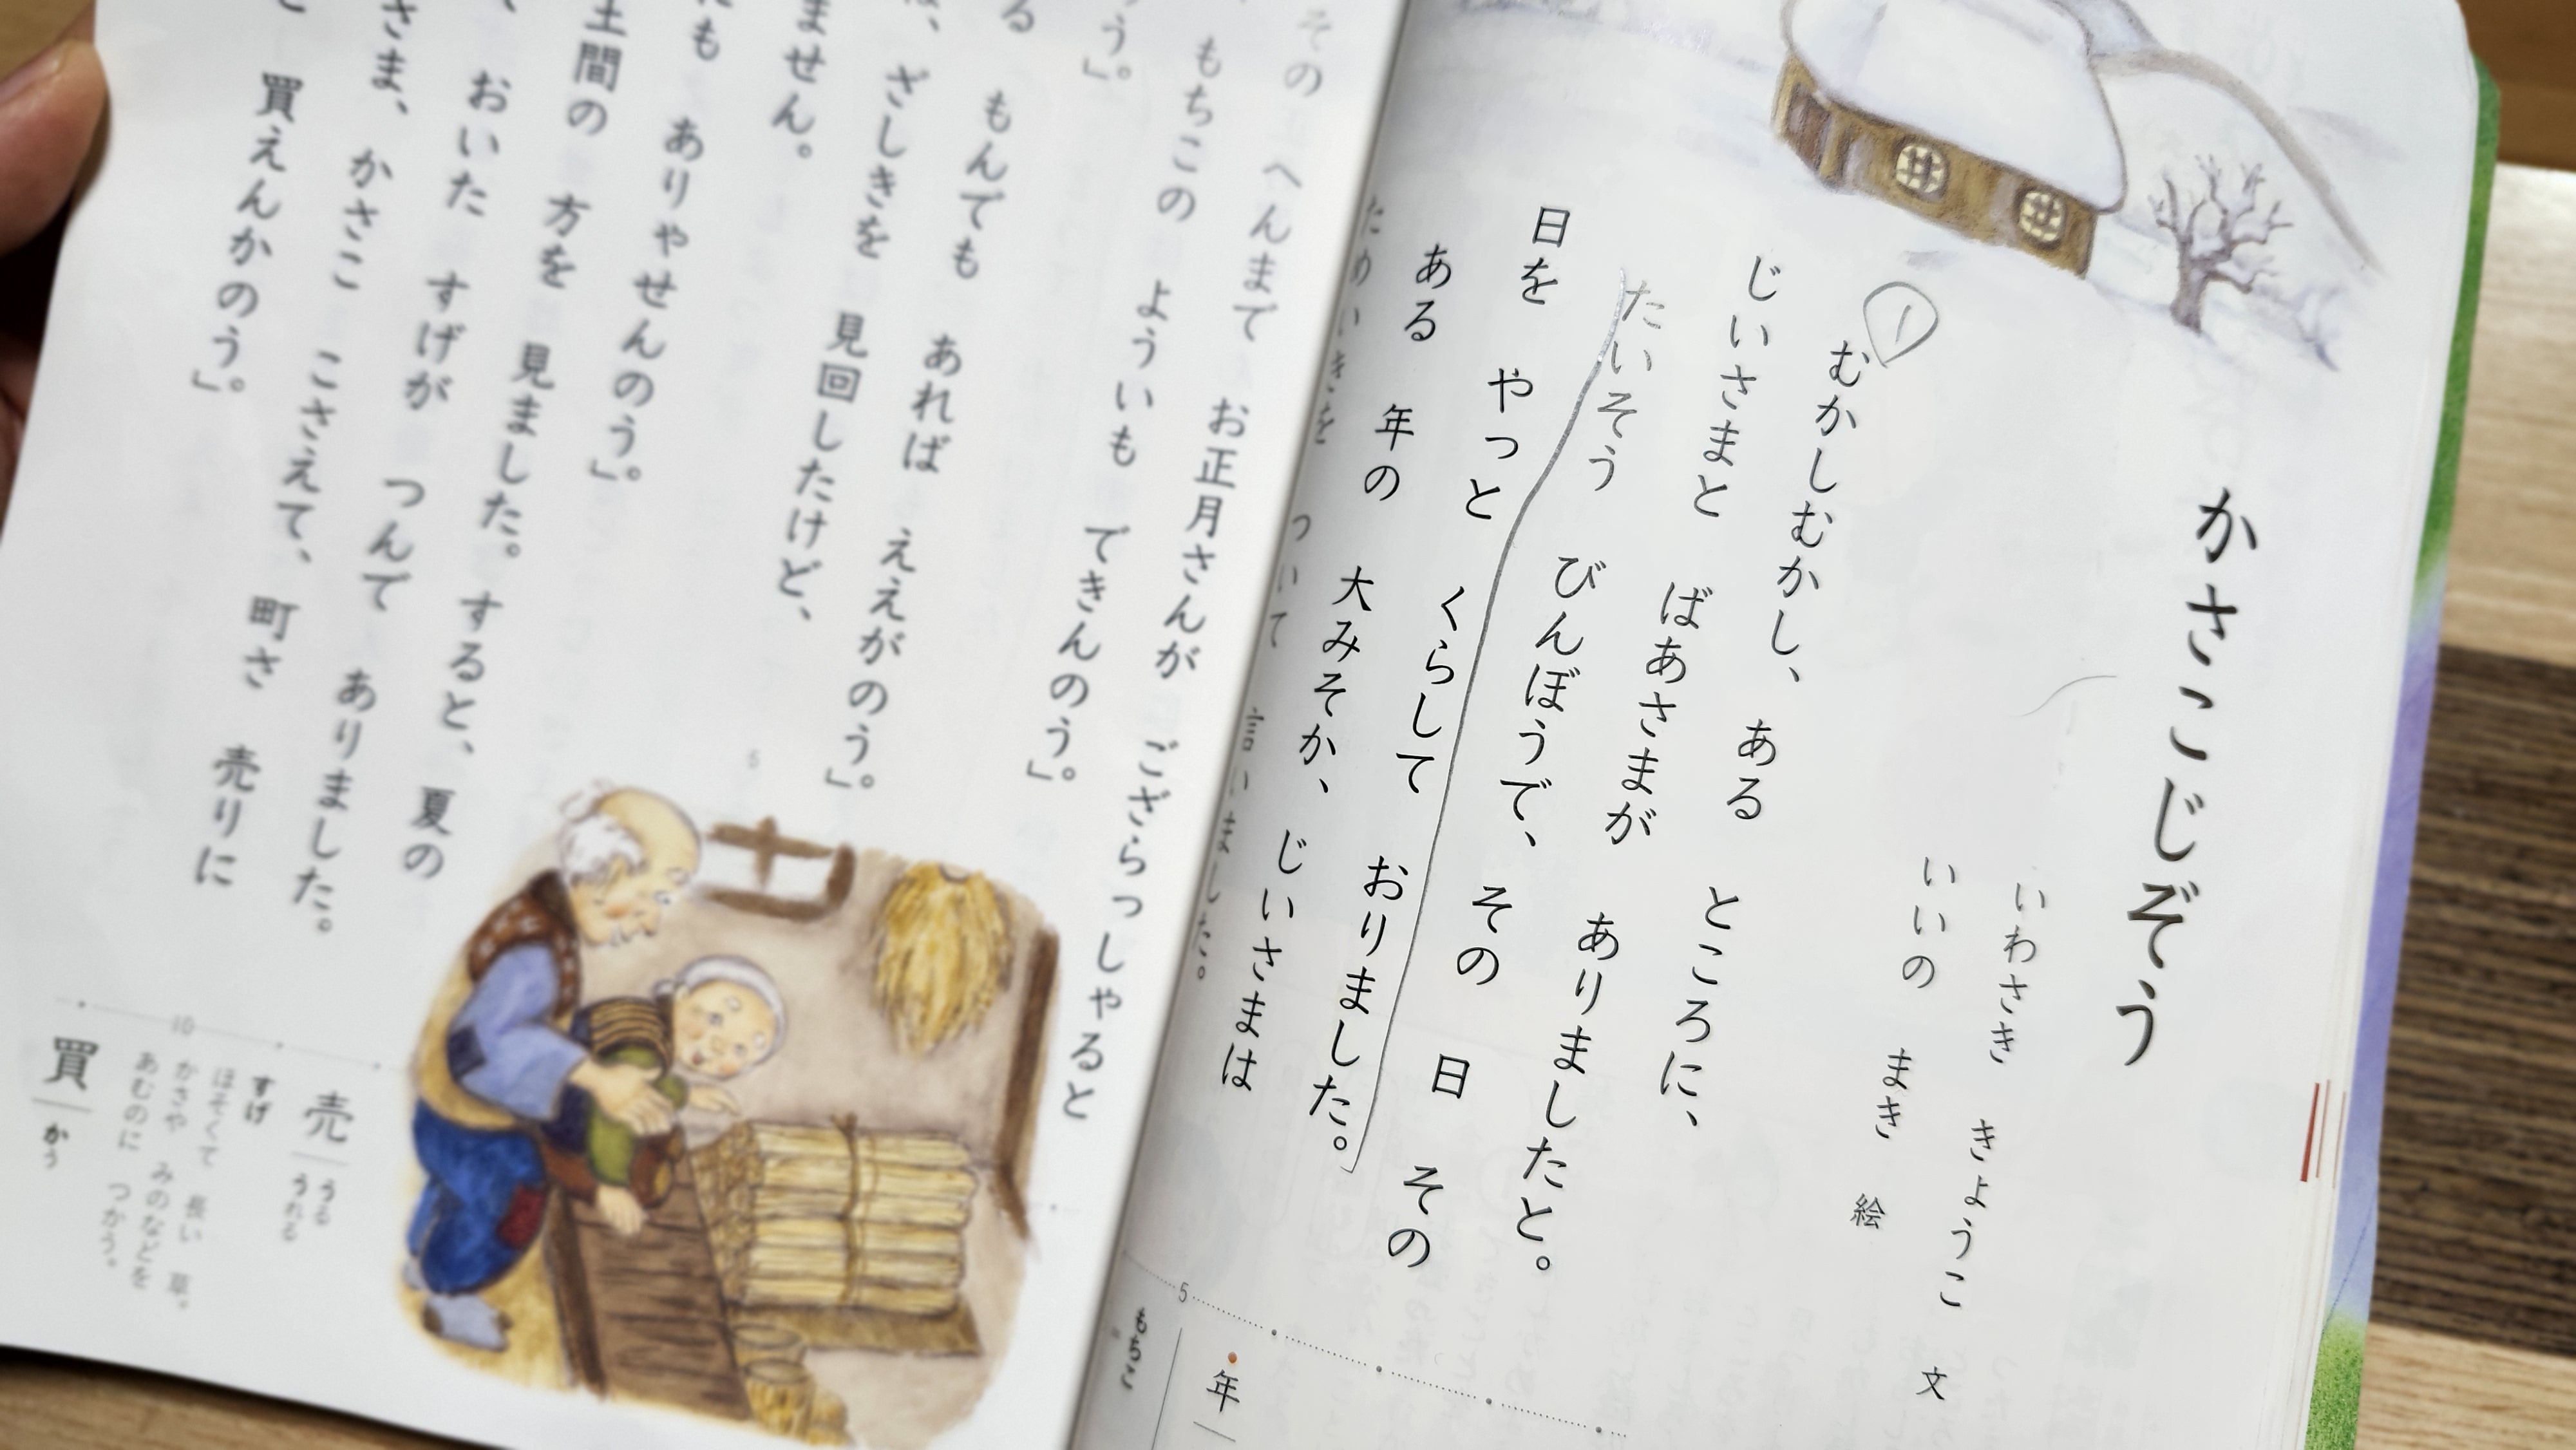 かさこじぞう
いわさき きょうこ 文
いいの まき 絵
1
むかしむかし、 ある ところに、
じいさまと ばあさまが ありましたと。
たいそう びんぼうで、 その 日 その
日を やっと くらして おりました。
ある 年の 大みそか、 じいさまは
ためいきを ついて 言いました。
5
年
もちこ
その へんまで お正月さんが ござらっしゃると
もちこの よういも できんのう。」
う。」
もんでも あれば ええがのう。」
ざしきを 見回したけど、
ません。
も ありやせんのう。」
土間の 方を 見ました。 すると、 夏の
おいた すげが つんで ありました。
さま、 かさこ こさえて、 町さ 売りに
買えんかのう。」
5
10
売 うる うれる
すげ
ほそくて 長い 草。
かさや みのなどを
あむのに つかう。
買 かう